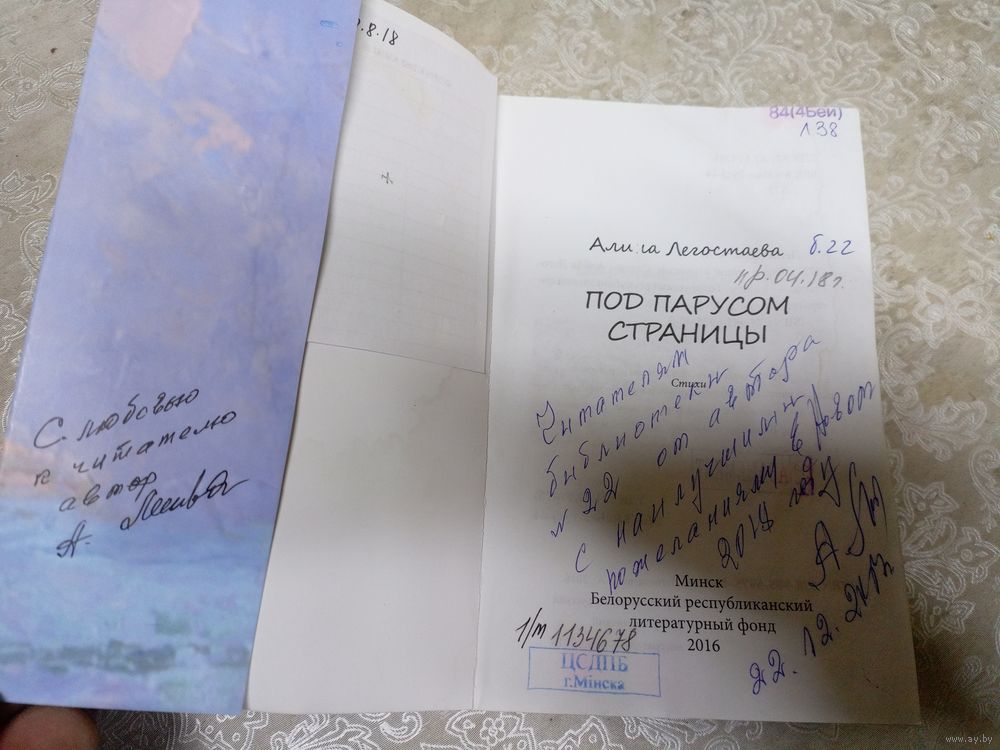 .8.18
С любовью
к читателю
автор
А.
84(4Беи)
Л38
Алиса Легостаева б.22
пр. 04.18г.
ПОД ПАРУСОМ
СТРАНИЦЫ
Стихи
Читателям
библиотеки
№ 22 от автора
с наилучшими
пожеланиями в Новом
2018 году
22.12.2017
Минск
Белорусский республиканский
литературный фонд
2016
1/т 1134678
ЦСДПБ
г.Мінска
www.ay.by